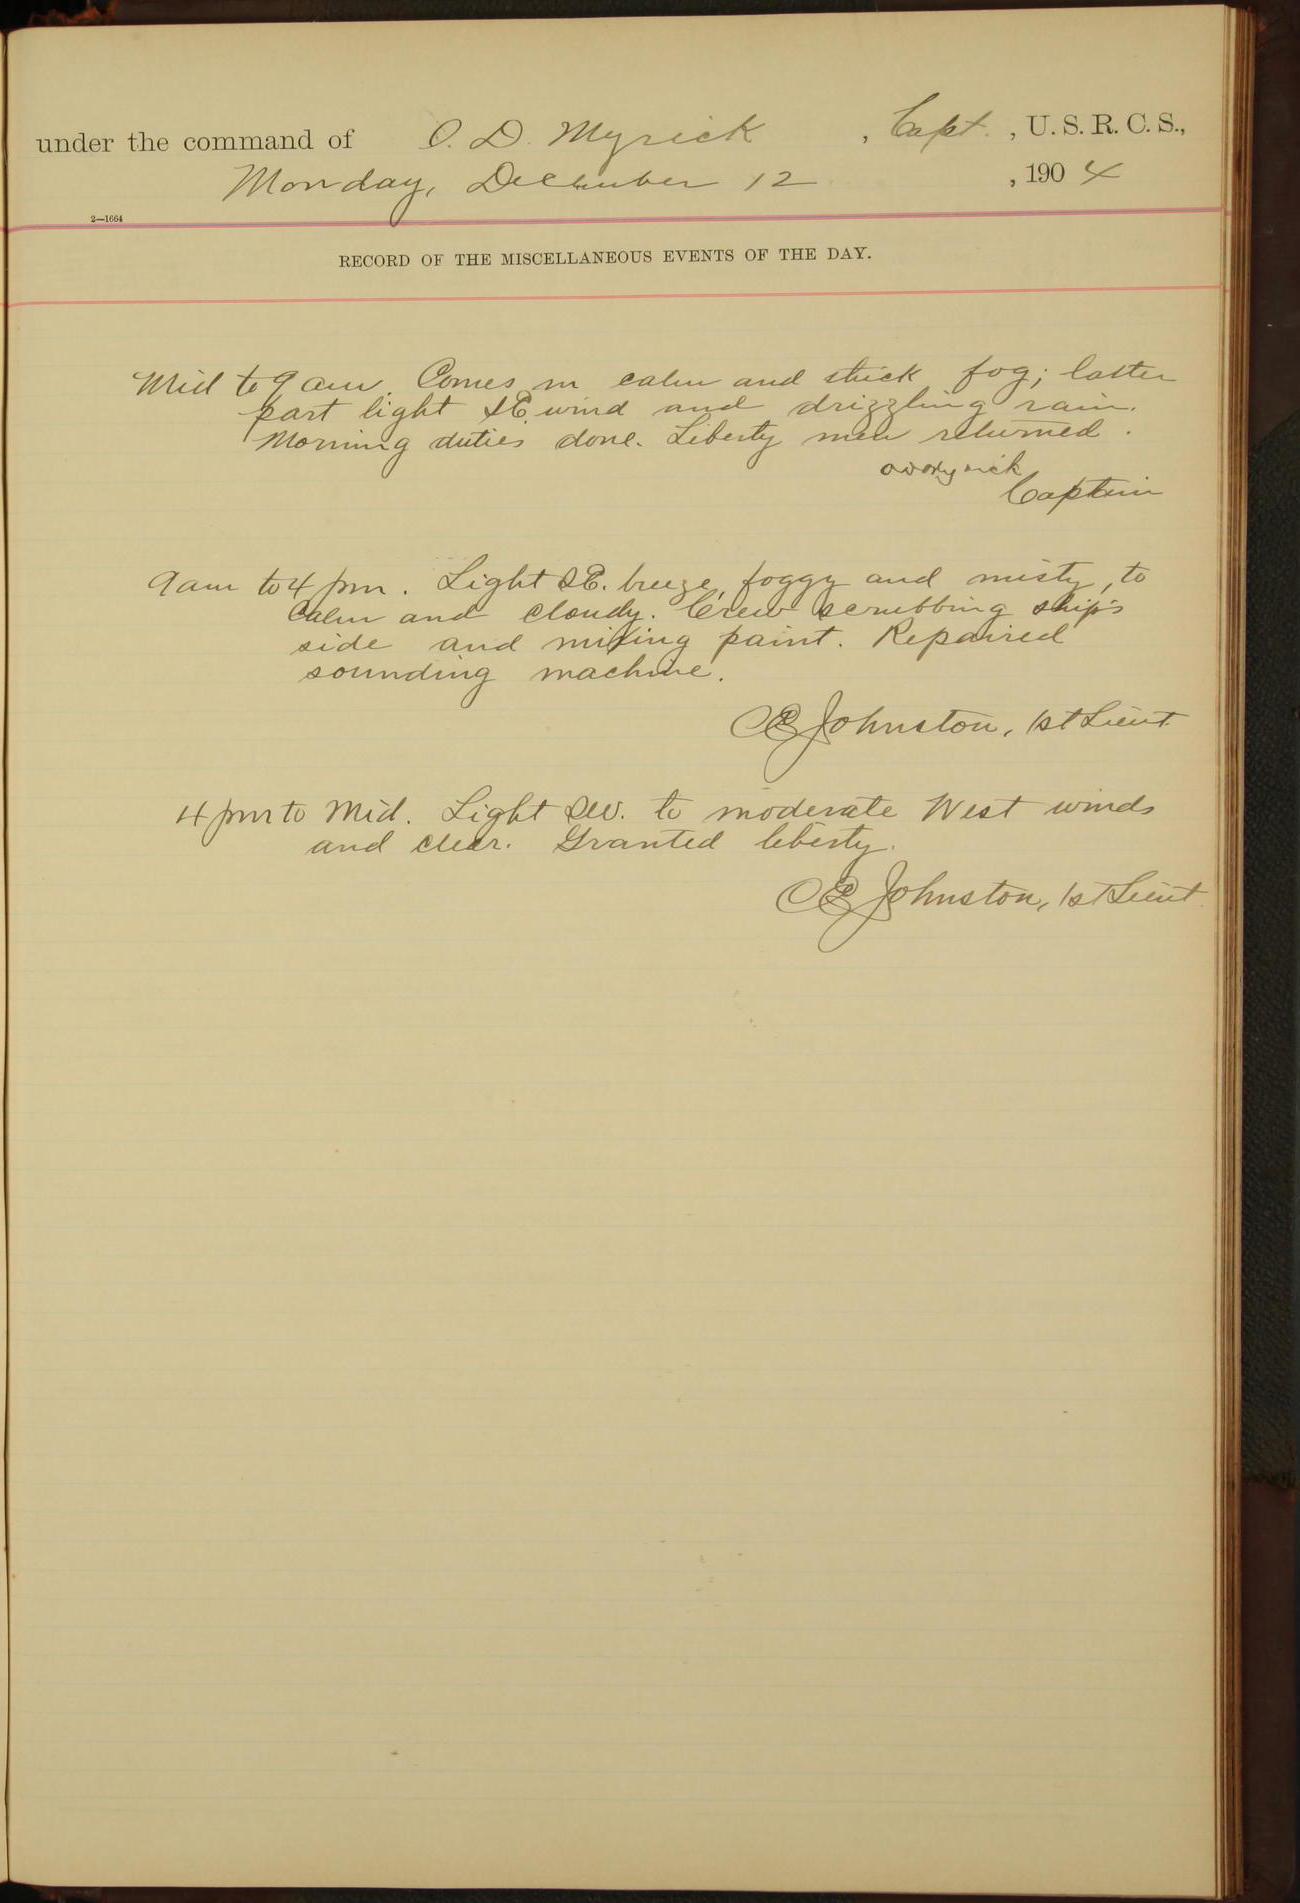 under the command of O. D. Myrick, Capt., U. S. R. C. S.,
Monday, December 12, 1904
2—1664
RECORD OF THE MISCELLANEOUS EVENTS OF THE DAY.
Mid to 9 am. Comes in calm and thick fog; latter
part light SE. wind and drizzling rain.
Morning duties done. Liberty men returned.
O D Myrick
Captain
9 am to 4 pm. Light SE. breeze, foggy and misty, to
calm and cloudy. Crew scrubbing ship's
side and mixing paint. Repaired
sounding machine.
CE Johnston, 1st Lieut.
4 pm to Mid. Light SW. to moderate West winds
and clear. Granted liberty.
CE Johnston, 1st Lieut.